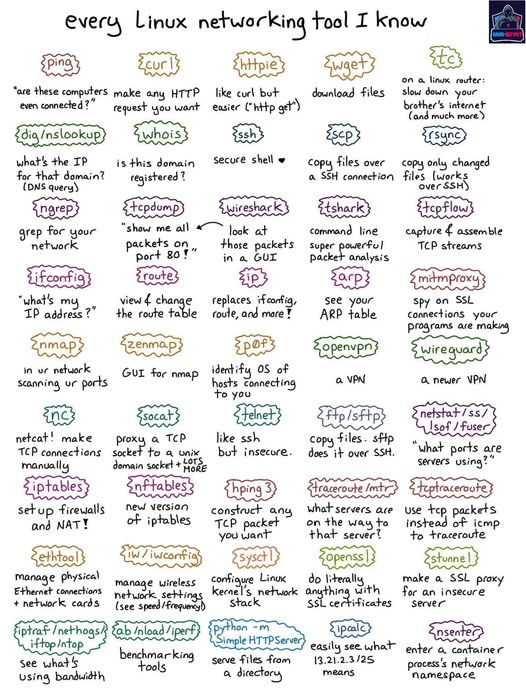 every Linux networking tool I know
DARK-REPORT
ping
"are these computers
even connected?"
curl
make any HTTP
request you want
httpie
like curl but
easier ("http get")
wget
download files
tc
on a linux router:
slow down your
brother's internet
(and much more)
dig/nslookup
what's the IP
for that domain?
(DNS query)
whois
is this domain
registered?
ssh
secure shell ♥
scp
copy files over
a SSH connection
rsync
copy only changed
files (works
over SSH)
ngrep
grep for your
network
tcpdump
"show me all
packets on
port 80!"
wireshark
look at
those packets
in a GUI
tshark
command line
super powerful
packet analysis
tcpflow
capture & assemble
TCP streams
ifconfig
"what's my
IP address?"
route
view & change
the route table
ip
replaces ifconfig,
route, and more!
arp
see your
ARP table
mitmproxy
spy on SSL
connections your
programs are making
nmap
in ur network
scanning ur ports
zenmap
GUI for nmap
p0f
identify OS of
hosts connecting
to you
openvpn
a VPN
wireguard
a newer VPN
nc
netcat! make
TCP connections
manually
socat
proxy a TCP
socket to a unix
domain socket + LOTS
MORE
telnet
like ssh
but insecure.
ftp/sftp
copy files. sftp
does it over SSH.
netstat/ss/
lsof/fuser
"what ports are
servers using?"
iptables
set up firewalls
and NAT!
nftables
new version
of iptables
hping3
construct any
TCP packet
you want
traceroute/mtr
what servers are
on the way to
that server?
tcptraceroute
use tcp packets
instead of icmp
to traceroute
ethtool
manage physical
Ethernet connections
+ network cards
iw/iwconfig
manage wireless
network settings
(see speed/frequency!)
sysctl
configure Linux
kernel's network
stack
openssl
do literally
anything with
SSL certificates
stunnel
make a SSL proxy
for an insecure
server
iptraf/nethogs/
iftop/ntop
see what's
using bandwidth
ab/nload/iperf
benchmarking
tools
python -m
SimpleHTTPServer
serve files from
a directory
ipcalc
easily see what
13.21.2.3/25
means
nsenter
enter a container
process's network
namespace